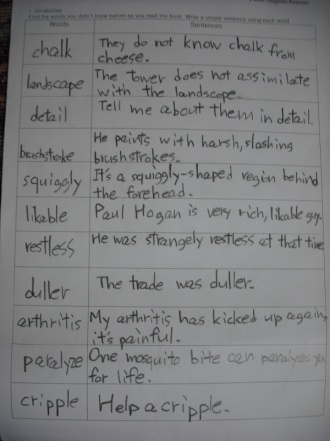 1. Vocabulary
Find the words you didn't know before you read the book. Write a simple sentence using each word
Words Sentences
chalk They do not know chalk from
cheese.
landscape The tower does not assimilate
with the landscape.
detail Tell me about them in detail.
brushstroke He paints with harsh, slashing
brushstrokes.
squiggly It's a squiggly-shaped region behind
the forehead.
likable Paul Hogan is very rich, likable guy.
restless He was strangely restless at that time
duller The trade was duller.
arthritis My arthritis has kicked up again,
it's painful.
paralyze One mosquito bite can paralyze you
for life.
cripple Help a cripple.